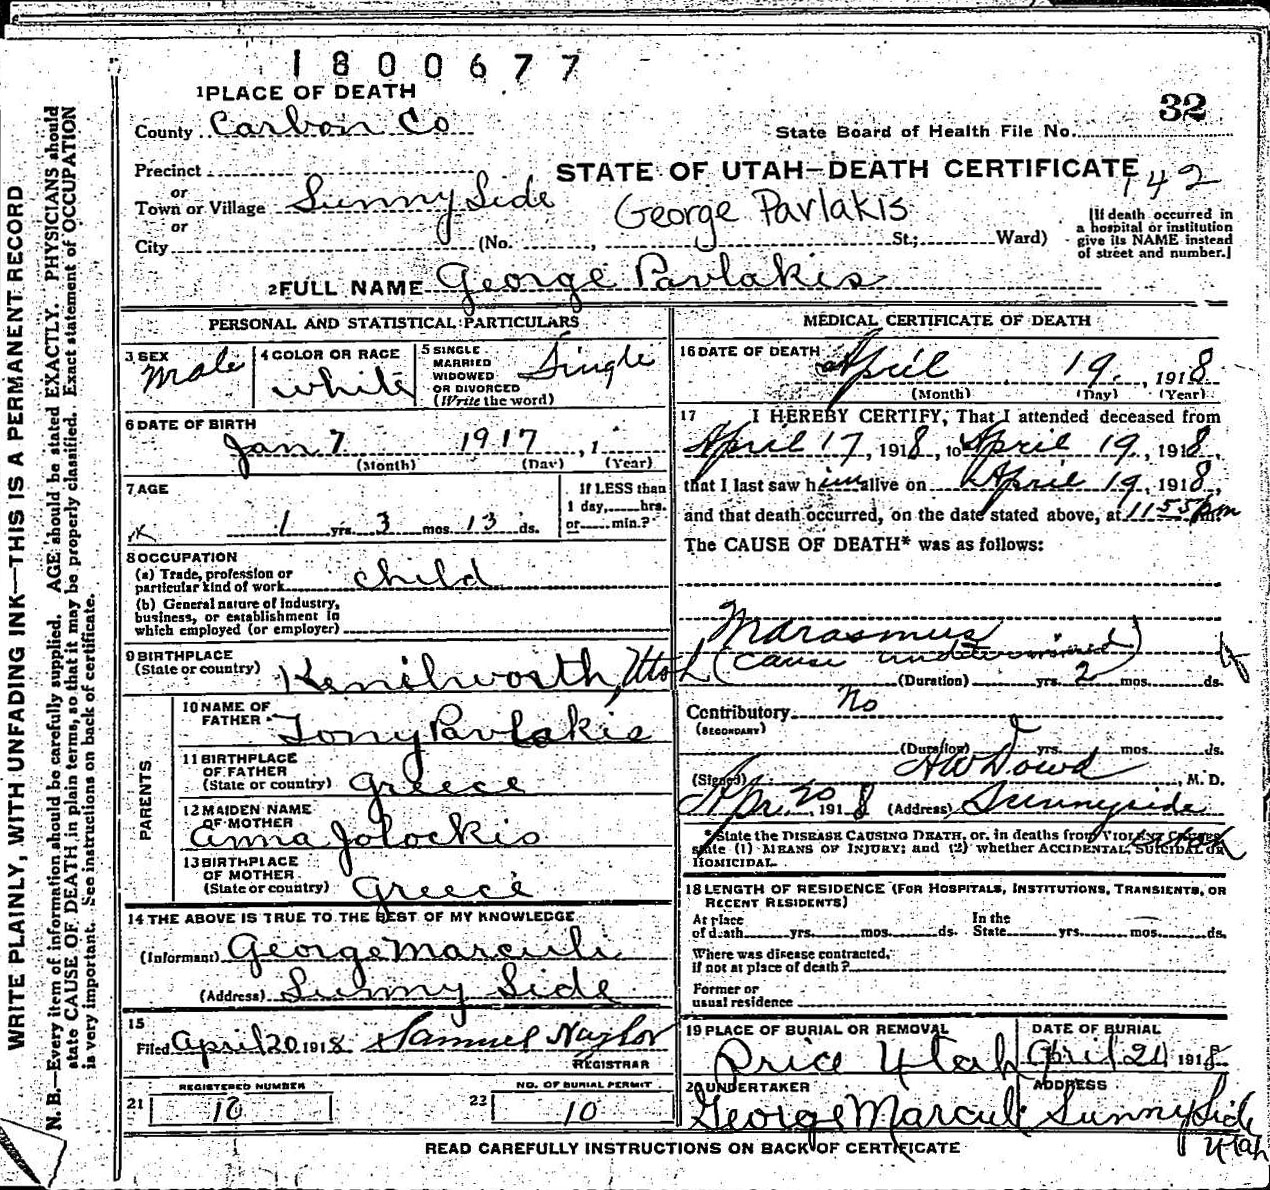 1800677
32
1 PLACE OF DEATH
County Carbon Co
State Board of Health File No.
Precinct
STATE OF UTAH—DEATH CERTIFICATE
142
or
Town or Village Sunny Side
George Pavlakis
or
City (No. , St.; Ward)
[If death occurred in
a hospital or institution
give its NAME instead
of street and number.]
2 FULL NAME George Pavlakis
PERSONAL AND STATISTICAL PARTICULARS
3 SEX
Male
4 COLOR OR RACE
white
5 SINGLE
MARRIED
WIDOWED
OR DIVORCED
(Write the word)
Single
6 DATE OF BIRTH
Jan 7 1917, 1
(Month) (Day) (Year)
7 AGE
1 yrs. 3 mos. 13 ds.
If LESS than
1 day, hrs.
or min.?
8 OCCUPATION
(a) Trade, profession or
particular kind of work child
(b) General nature of industry,
business, or establishment in
which employed (or employer)
9 BIRTHPLACE
(State or country) Kenilworth, Utah
PARENTS
10 NAME OF
FATHER Tony Pavlakis
11 BIRTHPLACE
OF FATHER
(State or country) Greece
12 MAIDEN NAME
OF MOTHER
Anna Jolockis
13 BIRTHPLACE
OF MOTHER
(State or country) Greece
14 THE ABOVE IS TRUE TO THE BEST OF MY KNOWLEDGE
(Informant) George Marculi
(Address) Sunny Side
15
Filed April 20 1918 Samuel Naylor
REGISTRAR
REGISTERED NUMBER
21 10
NO. OF BURIAL PERMIT
22 10
MEDICAL CERTIFICATE OF DEATH
16 DATE OF DEATH
April 19, 1918
(Month) (Day) (Year)
17 I HEREBY CERTIFY, That I attended deceased from
April 17, 1918, to April 19, 1918,
that I last saw him alive on April 19, 1918,
and that death occurred, on the date stated above, at 11 55 pm m.
The CAUSE OF DEATH* was as follows:
Marasmus
(cause undetermined)
(Duration) yrs. 2 mos. ds.
Contributory No
(SECONDARY)
(Duration) yrs. mos. ds.
(Signed) H W Dowd, M. D.
Apr. 20, 1918 (Address) Sunnyside
Utah
* State the DISEASE CAUSING DEATH, or, in deaths from VIOLENT CAUSES,
state (1) MEANS OF INJURY; and (2) whether ACCIDENTAL, SUICIDAL OR
HOMICIDAL.
18 LENGTH OF RESIDENCE (FOR HOSPITALS, INSTITUTIONS, TRANSIENTS, OR
RECENT RESIDENTS)
At place
of death yrs. mos. ds.
In the
State yrs. mos. ds.
Where was disease contracted,
if not at place of death?
Former or
usual residence
19 PLACE OF BURIAL OR REMOVAL
Price Utah
DATE OF BURIAL
April 21 1918
20 UNDERTAKER
George Marculi
ADDRESS
Sunny Side
Utah
READ CAREFULLY INSTRUCTIONS ON BACK OF CERTIFICATE
WRITE PLAINLY, WITH UNFADING INK—THIS IS A PERMANENT RECORD
N. B.—Every item of information should be carefully supplied. AGE should be stated EXACTLY. PHYSICIANS should
state CAUSE OF DEATH in plain terms, so that it may be properly classified. Exact statement of OCCUPATION
is very important. See instructions on back of certificate.